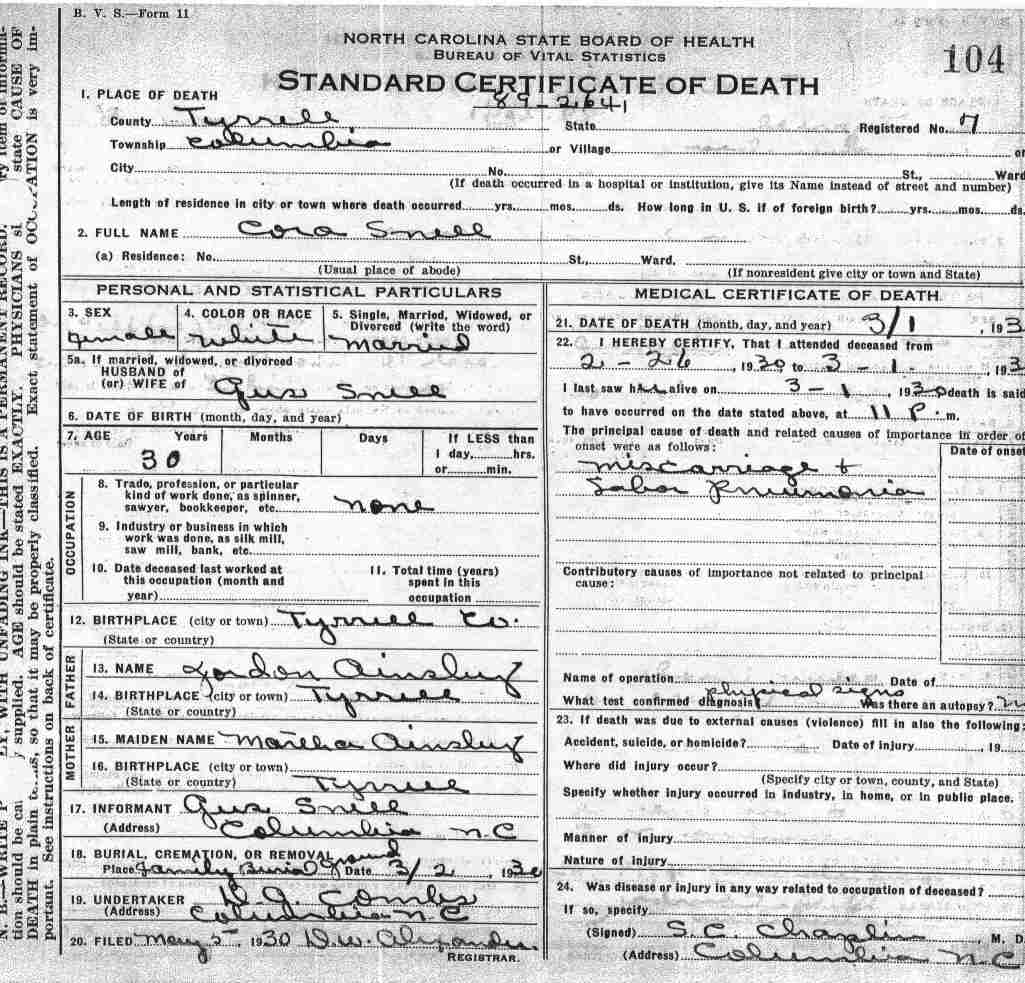 B. V. S.—Form 11
NORTH CAROLINA STATE BOARD OF HEALTH
BUREAU OF VITAL STATISTICS
104
STANDARD CERTIFICATE OF DEATH
89-2641
1. PLACE OF DEATH
County Tyrrell State Registered No. 7
Township Columbia or Village or
City No. St., Ward
(If death occurred in a hospital or institution, give its Name instead of street and number)
Length of residence in city or town where death occurred yrs. mos. ds. How long in U. S. if of foreign birth? yrs. mos. ds
2. FULL NAME Cora Snell
(a) Residence: No. St., Ward.
(Usual place of abode) (If nonresident give city or town and State)
PERSONAL AND STATISTICAL PARTICULARS
3. SEX 4. COLOR OR RACE 5. Single, Married, Widowed, or
Divorced (write the word)
female white Married
5a. If married, widowed, or divorced
HUSBAND of
(or) WIFE of Gus Snell
6. DATE OF BIRTH (month, day, and year)
7. AGE Years Months Days If LESS than
1 day, hrs.
or min.
30
OCCUPATION
8. Trade, profession, or particular
kind of work done, as spinner,
sawyer, bookkeeper, etc. none
9. Industry or business in which
work was done, as silk mill,
saw mill, bank, etc.
10. Date deceased last worked at
this occupation (month and
year)
11. Total time (years)
spent in this
occupation
12. BIRTHPLACE (city or town) Tyrrell Co.
(State or country)
FATHER
13. NAME Gordon Ainsley
14. BIRTHPLACE (city or town) Tyrrell
(State or country)
MOTHER
15. MAIDEN NAME Martha Ainsley
16. BIRTHPLACE (city or town)
(State or country) Tyrrell
17. INFORMANT Gus Snell
(Address) Columbia N.C
18. BURIAL, CREMATION, OR REMOVAL
Place Family Burial ground Date 3/2, 1930
19. UNDERTAKER D. J. Combs
(Address) Columbia N.C
20. FILED May 5, 1930 D. W. Alexander
REGISTRAR.
MEDICAL CERTIFICATE OF DEATH
21. DATE OF DEATH (month, day, and year) 3/1, 193
22. I HEREBY CERTIFY, That I attended deceased from
2-26, 1930 to 3-1-, 193
I last saw her alive on 3-1, 1930 death is said
to have occurred on the date stated above, at 11 P. m.
The principal cause of death and related causes of importance in order of
onset were as follows: Date of onset
Miscarriage &
Lobar Pneumonia
Contributory causes of importance not related to principal
cause:
Name of operation Date of
What test confirmed diagnosis? physical signs Was there an autopsy?
23. If death was due to external causes (violence) fill in also the following:
Accident, suicide, or homicide? Date of injury, 19
Where did injury occur?
(Specify city or town, county, and State)
Specify whether injury occurred in industry, in home, or in public place.
Manner of injury
Nature of injury
24. Was disease or injury in any way related to occupation of deceased?
If so, specify
(Signed) S. C. Chaplin, M. D
(Address) Columbia N.C
N. B.—WRITE LY, WITH UNFADING INK—THIS IS A PERMANENT RECORD. ry item of informa-
tion should be y supplied. AGE should be stated EXACTLY. PHYSICIANS state CAUSE OF
DEATH in plain so that it may be properly classified. Exact statement of OCCUPATION is very im-
portant. See instructions on back of certificate.